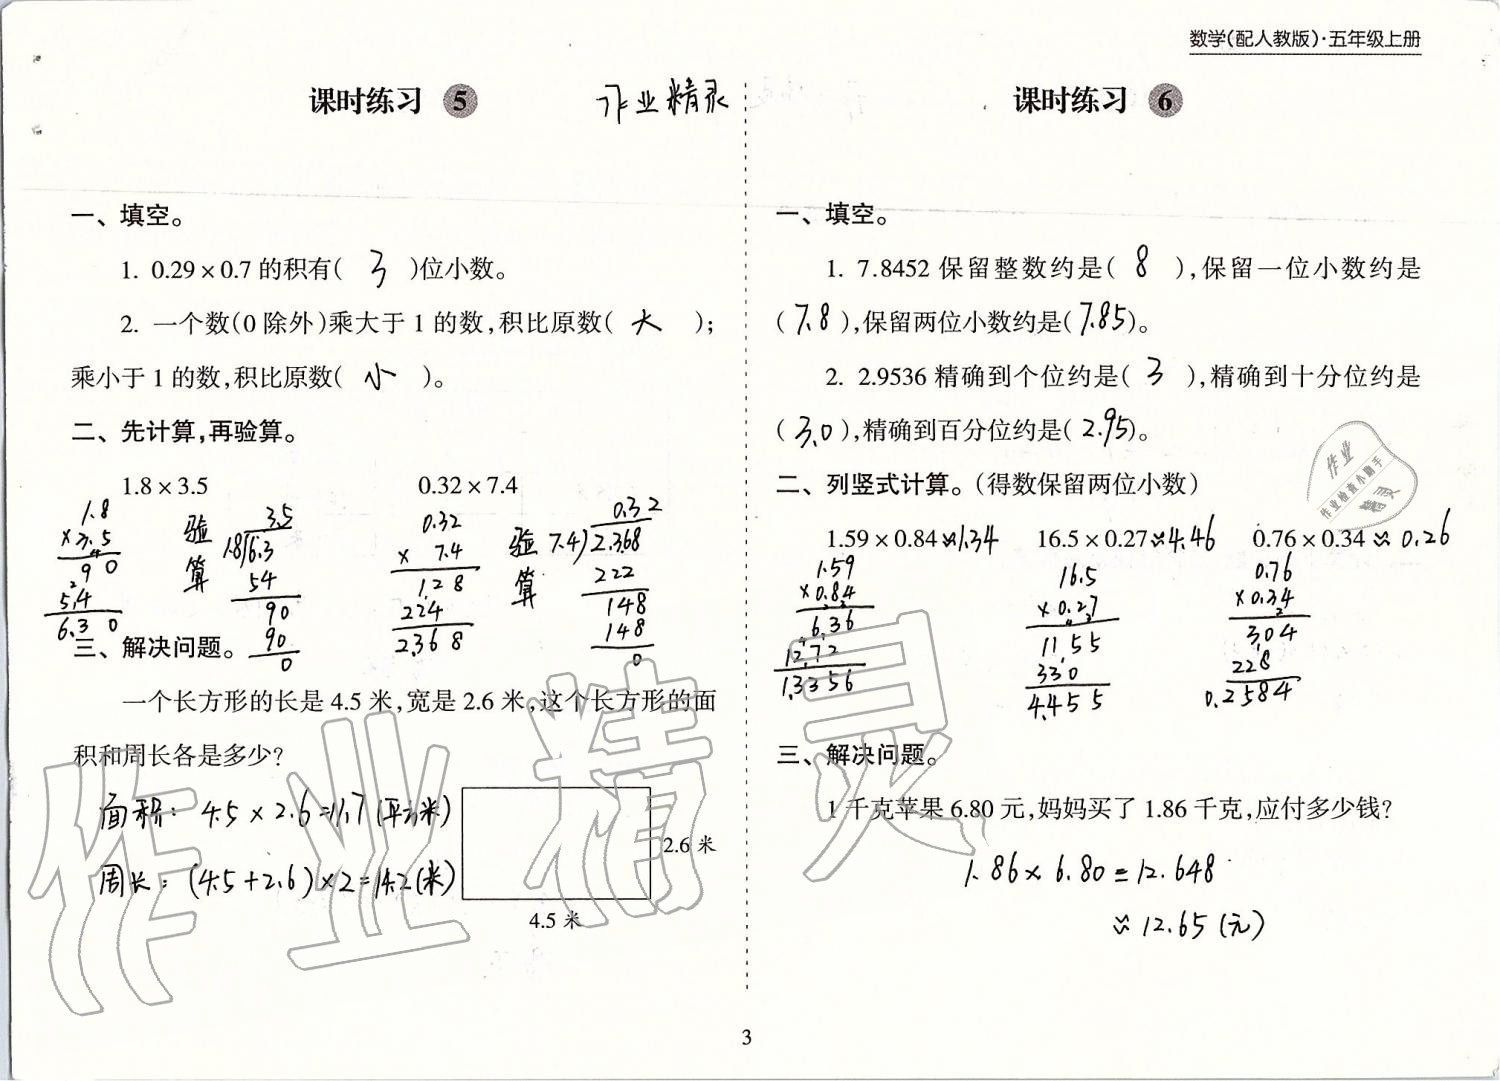 数学(配人教版)·五年级上册
课时练习 5
作业精灵
一、填空。
1. 0.29×0.7的积有( 3 )位小数。
2. 一个数(0除外)乘大于1的数,积比原数( 大 );
乘小于1的数,积比原数( 小 )。
二、先计算,再验算。
1.8×3.5 0.32×7.4
1.8
×3.5
9 0
5.4
6.3 0
验算
3.5
1.8)6.3
54
90
90
0
0.32
× 7.4
1.2 8
224
2.36 8
验算
0.32
7.4)2.368
222
148
148
0
三、解决问题。
一个长方形的长是4.5米,宽是2.6米,这个长方形的面
积和周长各是多少?
面积: 4.5×2.6=11.7(平方米)
周长: (4.5+2.6)×2=14.2(米)
2.6米
4.5米
课时练习 6
一、填空。
1. 7.8452保留整数约是( 8 ),保留一位小数约是
( 7.8 ),保留两位小数约是( 7.85 )。
2. 2.9536精确到个位约是( 3 ),精确到十分位约是
( 3.0 ),精确到百分位约是( 2.95 )。
二、列竖式计算。(得数保留两位小数)
1.59×0.84≈1.34 16.5×0.27≈4.46 0.76×0.34≈0.26
1.59
×0.84
6.36
12.72
1.3356
16.5
×0.27
11.55
330
4.455
0.76
×0.34
3.04
228
0.2584
三、解决问题。
1千克苹果6.80元,妈妈买了1.86千克,应付多少钱?
1.86×6.80=12.648
≈12.65(元)
作业
作业检查小助手
精灵
作业精灵
3